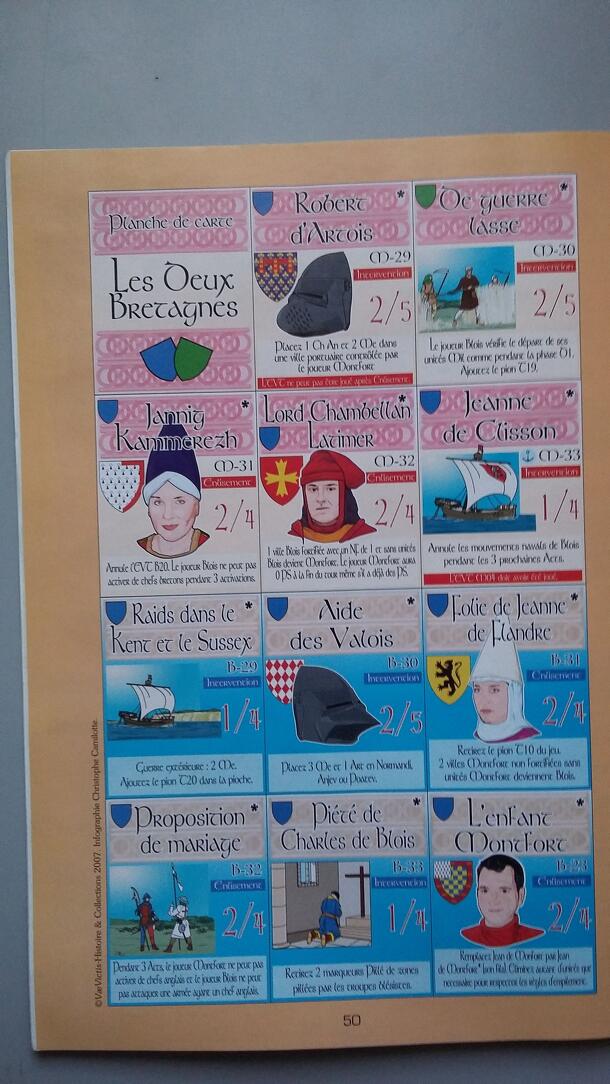 Planche de carte
Les Deux
Bretagnes
Robert *
d'Artois
M-29
Intervention
2/5
Placez 1 Ch An et 2 Me dans
une ville portuaire contrôlée par
le joueur Montfort
L'EVT ne peut pas être joué après Enlisement.
De guerre *
lasse
M-30
Intervention
2/5
Le joueur Blois vérifie le départ de ses
unités Mil comme pendant la phase D1.
Ajoutez le pion T19.
Jannig *
Kammerezh
M-31
Enlisement
2/4
Annule l'EVT B20. Le joueur Blois ne peut pas
activer de chefs bretons pendant 3 activations.
Lord Chambellan *
Latimer
M-32
Enlisement
2/4
1 ville Blois fortifiée avec un NF de 1 et sans unités
Blois devient Montfort. Le joueur Montfort aura
0 PS à la fin du tour même s'il a déjà des PS.
Jeanne *
de Clisson
M-33
Intervention
1/4
Annule les mouvements navals de Blois
pendant les 3 prochaines Acts.
L'EVT M04 doit avoir été joué.
Raids dans le
Kent et le Sussex
B-29
Intervention
1/4
Guerre extérieure : 2 Me.
Ajoutez le pion T20 dans la pioche.
Aide *
des Valois
B-30
Intervention
2/5
Placez 3 Me et 1 Art en Normandi,
Anjev ou Poatev.
Folie de Jeanne *
de Flandre
B-31
Enlisement
2/4
Retirez le pion T10 du jeu.
2 villes Montfort non fortifiées sans
unités Montfort deviennent Blois.
Proposition *
de mariage
B-32
Enlisement
2/4
Pendant 3 Acts, le joueur Montfort ne peut pas
activer de chefs anglais et le joueur Blois ne peut
pas attaquer une armée ayant un chef anglais.
Piété de *
Charles de Blois
B-33
Intervention
1/4
Retirez 2 marqueurs Pillé de zones
pillées par les troupes blésistes.
L'enfant *
Montfort
B-23
Enlisement
2/4
Remplacez Jean de Monfort par Jean
de Montfort* (son fils). Eliminez autant d'unités que
nécessaire pour respecter les règles d'empilement.
©VaeVictis-Histoire & Collections 2007. Infographie Christophe Camilotte.
50